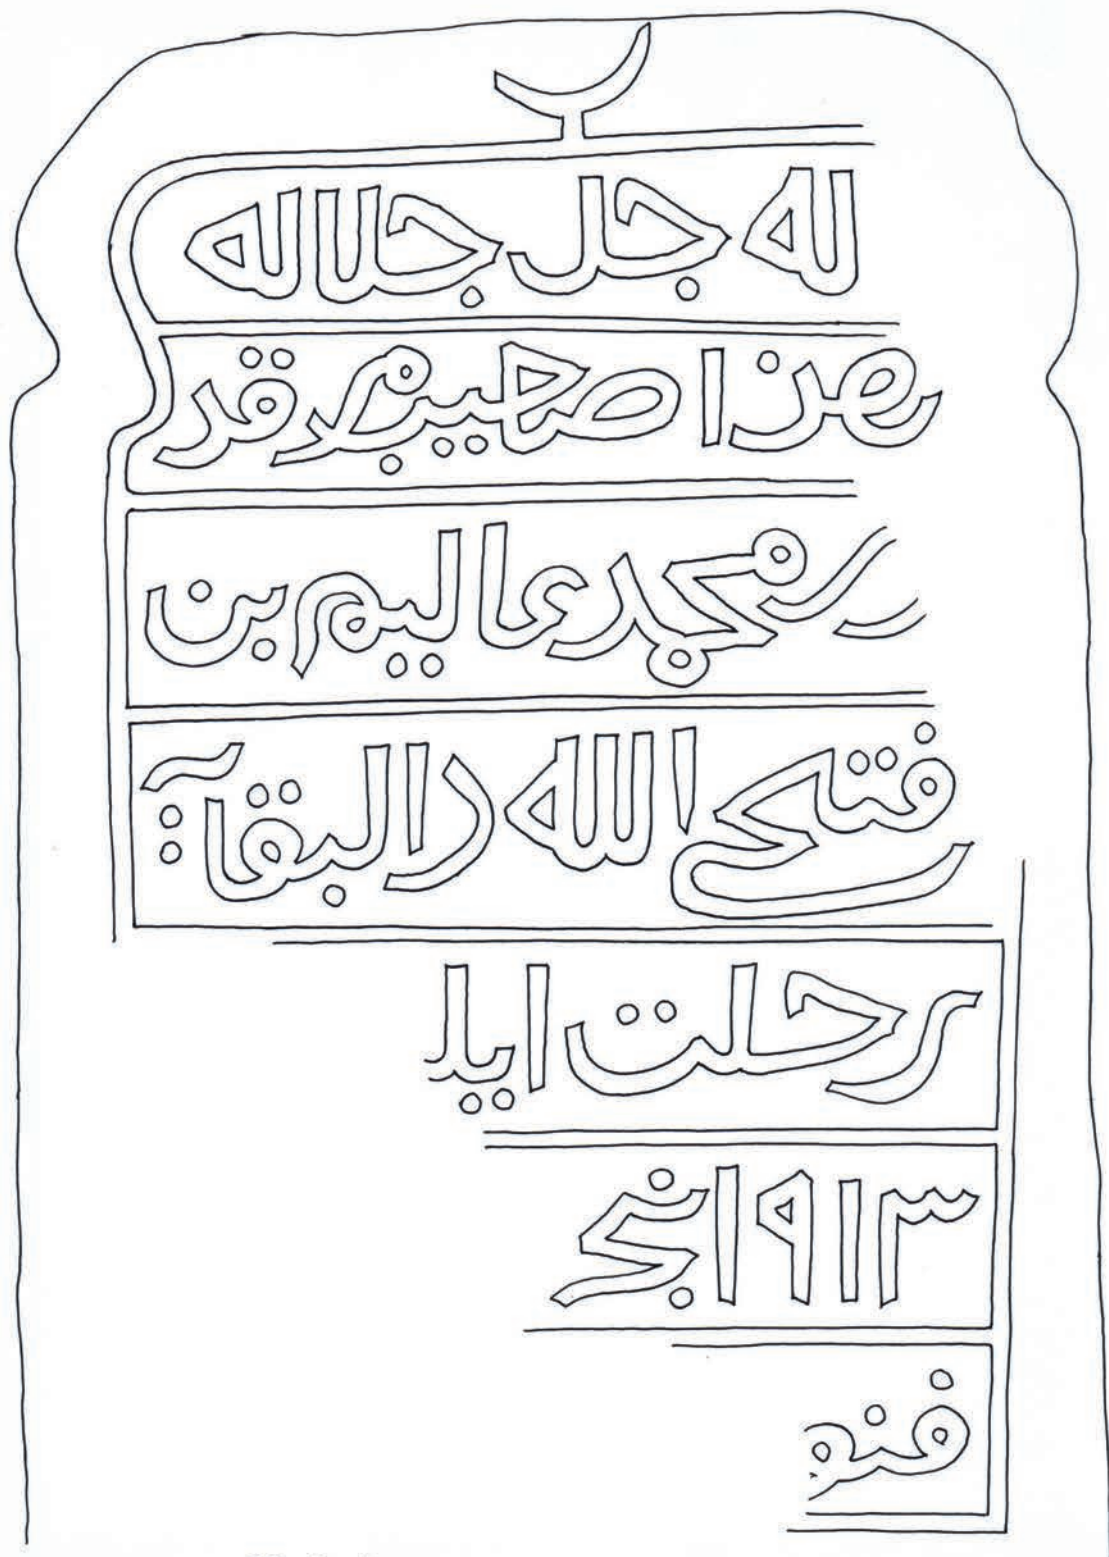 له جل جلاله
هذا صحيب مرقد
محمد عاليم بن
فتح الله دالبقآ
رحلت ايلـ
١٩١٣ نجـ
فنو